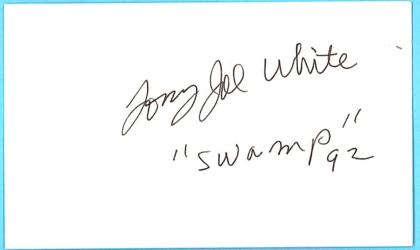 Tony Joe White
"swamp" 92